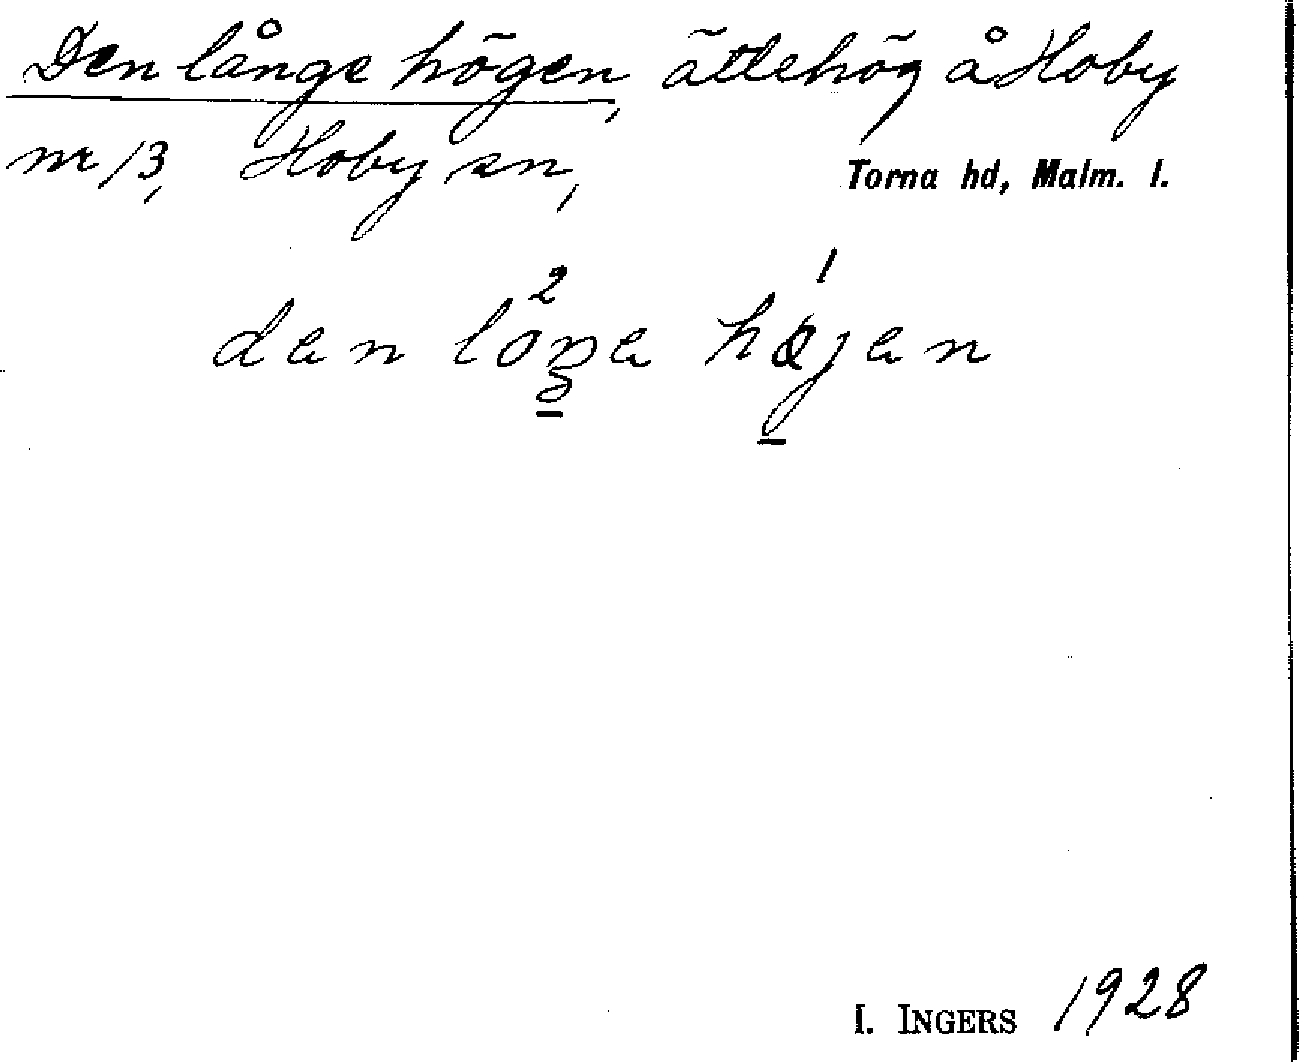 Den långe högen, ättehög å Hoby
nr 13, Hoby sn, Torna hd, Malm. l.
2 1
den loŋa højan
I. INGERS 1928